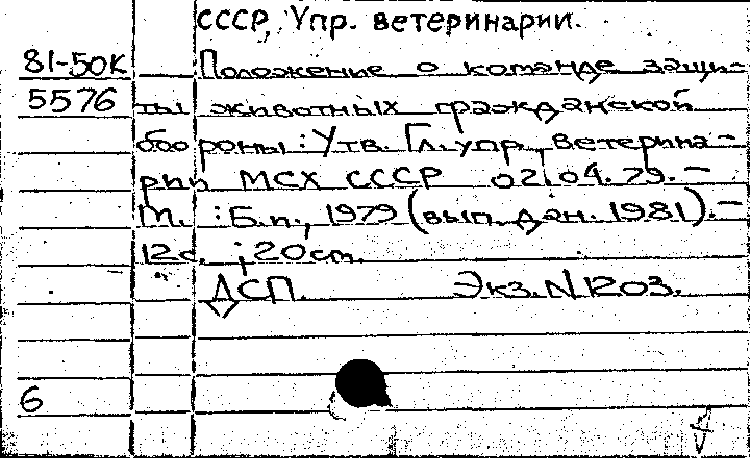 СССР, Упр. ветеринарии.
81-50К Положение о команде защи-
5576 ты животных гражданской
обороны: Утв. Гл. упр. ветерина-
рии МСХ СССР 02.04.79. -
М. : Б.и., 1979 (вып. дан. 1981). -
12с. ; 20см.
ДСП. Экз. N 1203.
6